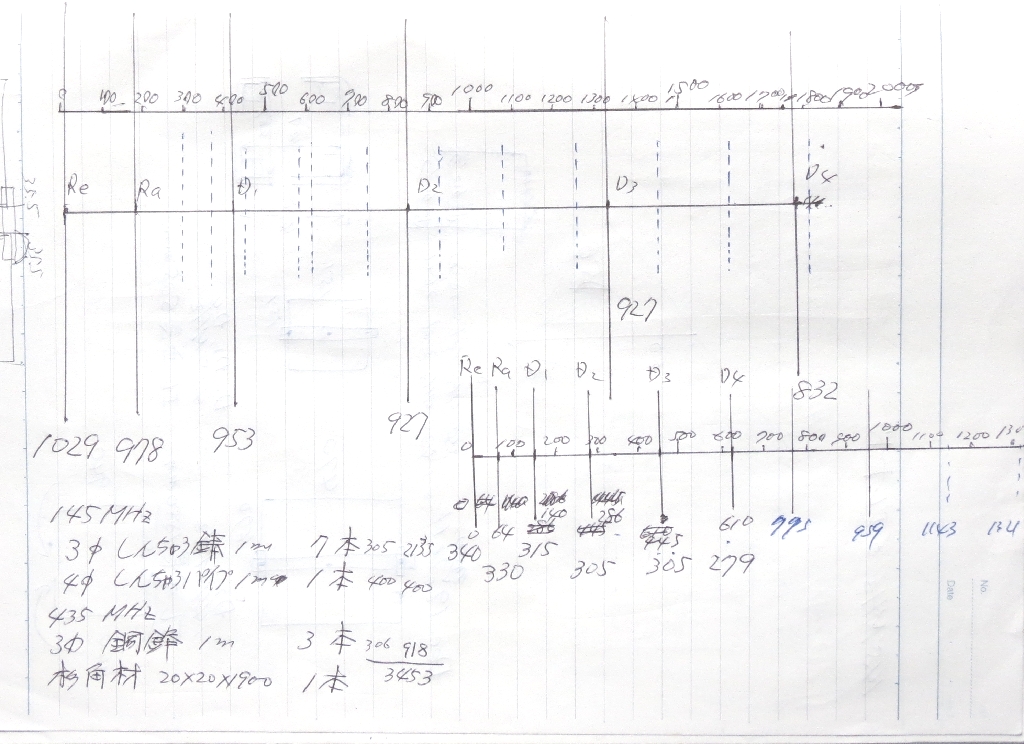 0 100 200 300 400 500 600 700 800 900 1000 1100 1200 1300 1400 1500 1600 1700 1800 1900 2000
Re Ra D1 D2 D3 D4
927
832
1029 978 953 927
Re Ra D1 D2 D3 D4
0 100 200 300 400 500 600 700 800 900 1000 1100 1200 130
140 286
0 64 445 610 795 959 1143 131
340 330 315 305 305 279
145 MHz
3φ しんちゅう棒 1m 7本 305 2135
4φ しんちゅうパイプ 1m 1本 400 400
435 MHz
3φ 銅棒 1m 3本 306 918
3453
杉角材 20×20×1900 1本
No.
Date